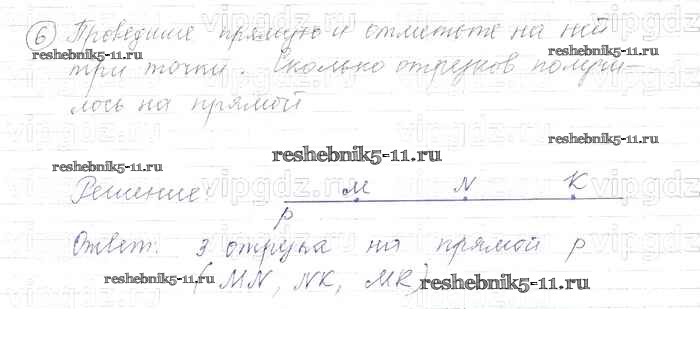 6 Проведите прямую и отметьте на ней
reshebnik5-11.ru reshebnik5-11.ru
три точки. Сколько отрезков получи-
лось на прямой
reshebnik5-11.ru
reshebnik5-11.ru reshebnik5-11.ru
Решение:
M N K
p
Ответ: 3 отрезка на прямой p
(MN, NK, MK)
reshebnik5-11.ru reshebnik5-11.ru